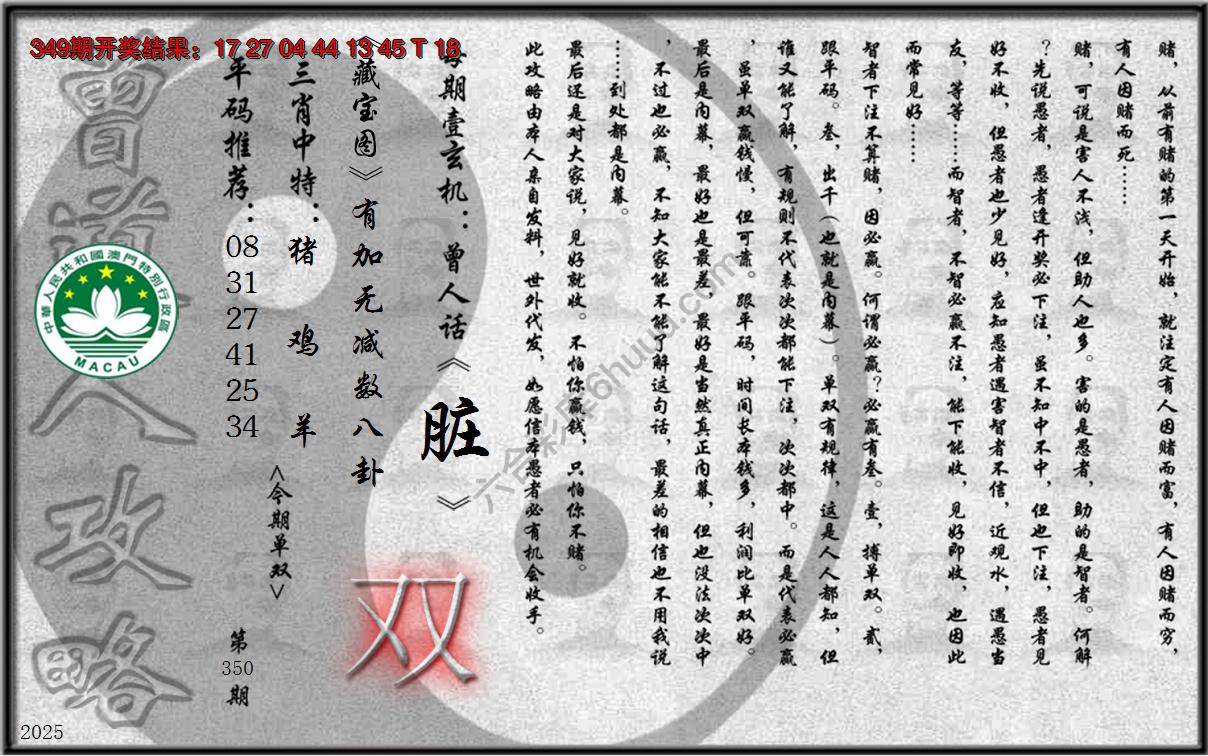 349期开奖结果：17 27 04 44 13 45 T 18
赌，从前有赌的第一天开始，就注定有人因赌而富，有人因赌而穷，
有人因赌而死……
赌，可说是害人不浅，但助人也多。害的是愚者，助的是智者。何解
？先说愚者，愚者逢开奖必下注，虽不知中不中，但也下注，愚者见
好不收，但愚者也少见好，应知愚者遇害智者不信，近观水，遇愚当
友，等等……而智者，不智必赢不注，能下能收，见好即收，也因此
而常见好……
智者下注不算赌，因必赢。何谓必赢？必赢有叁。壹，搏单双。贰，
跟平码。叁，出千（也就是内幕）。单双有规律，这是人人都知，但
谁又能了解，有规则不代表次次都能下注，次次都中。而是代表必赢
，虽单双赢钱慢，但可靠。跟平码，时间长本钱多，利润比单双好。
最后是内幕，最好也是最差，最好是当然真正内幕，但也没法次次中
，不过也必赢，不知大家能不能了解这句话，最差的相信也不用我说
……到处都是内幕。
最后还是对大家说，见好就收。不怕你赢钱，只怕你不赌。
此攻略由本人亲自发料，世外代发，如愿信本愚者必有机会收手。
每期壹玄机：曾人话《脏》
《藏宝图》有加无减数八卦
双
三肖中特：猪 鸡 羊
<今期单双>
平码推荐：
08
31
27
41
25
34
第
350
期
曾道人攻略
中華人民共和國澳門特別行政區
MACAU
六合彩库6huuu.com
2025